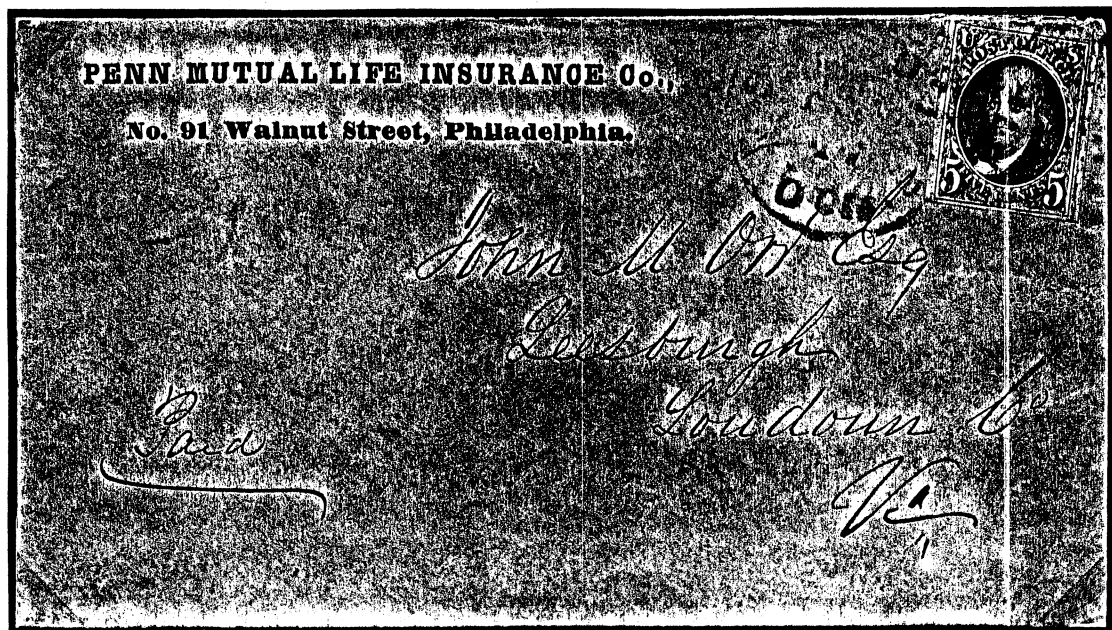 PENN MUTUAL LIFE INSURANCE Co.,
No. 91 Walnut Street, Philadelphia.
POST OFFICE
5 CENTS 5
John M Orr Esq
Leesburgh
Loudoun Co
Va
Paid